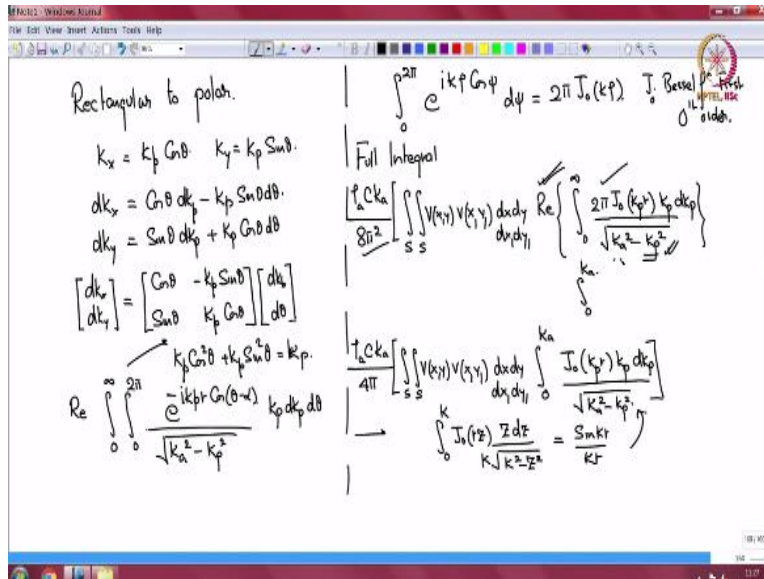 Note1 - Windows Journal
File Edit View Insert Actions Tools Help
NPTEL, IISc
Rectangular to polar.
k_x = k_p Cosθ. k_y = k_p Sinθ.
dk_x = Cosθ dk_p - k_p Sinθ dθ.
dk_y = Sinθ dk_p + k_p Cosθ dθ
[dk_x dk_y] = [Cosθ -k_p Sinθ Sinθ k_p Cosθ] [dk_p dθ]
k_p Cos²θ + k_p Sin²θ = k_p.
Re ∫_0^∞ ∫_0^{2π} e^{-ik_p r Cos(θ-α)} / √(k_a² - k_p²) k_p dk_p dθ
∫_0^{2π} e^{ikρ Cosψ} dψ = 2π J_0(kρ). J_0 Bessel first
0th order.
Full Integral
ρ_a c k_a / 8π² [∫_S ∫_S V(x,y) V(x_1,y_1) dx dy dx_1 dy_1 Re { ∫_0^∞ 2π J_0(k_p r) k_p dk_p / √(k_a² - k_p²) }
∫_0^{k_a}
ρ_a c k_a / 4π [∫_S ∫_S V(x,y) V(x_1,y_1) dx dy dx_1 dy_1 ∫_0^{k_a} J_0(k_p r) k_p dk_p / √(k_a² - k_p²) ]
→ ∫_0^k J_0(rz) z dz / k√(k² - z²) = Sin kr / kr
13:27